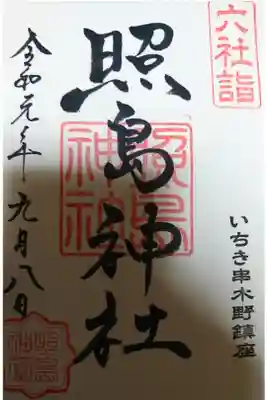 六社詣
いちき串木野鎮座
照島神社
照島神社
令和元年九月八日
照島神社